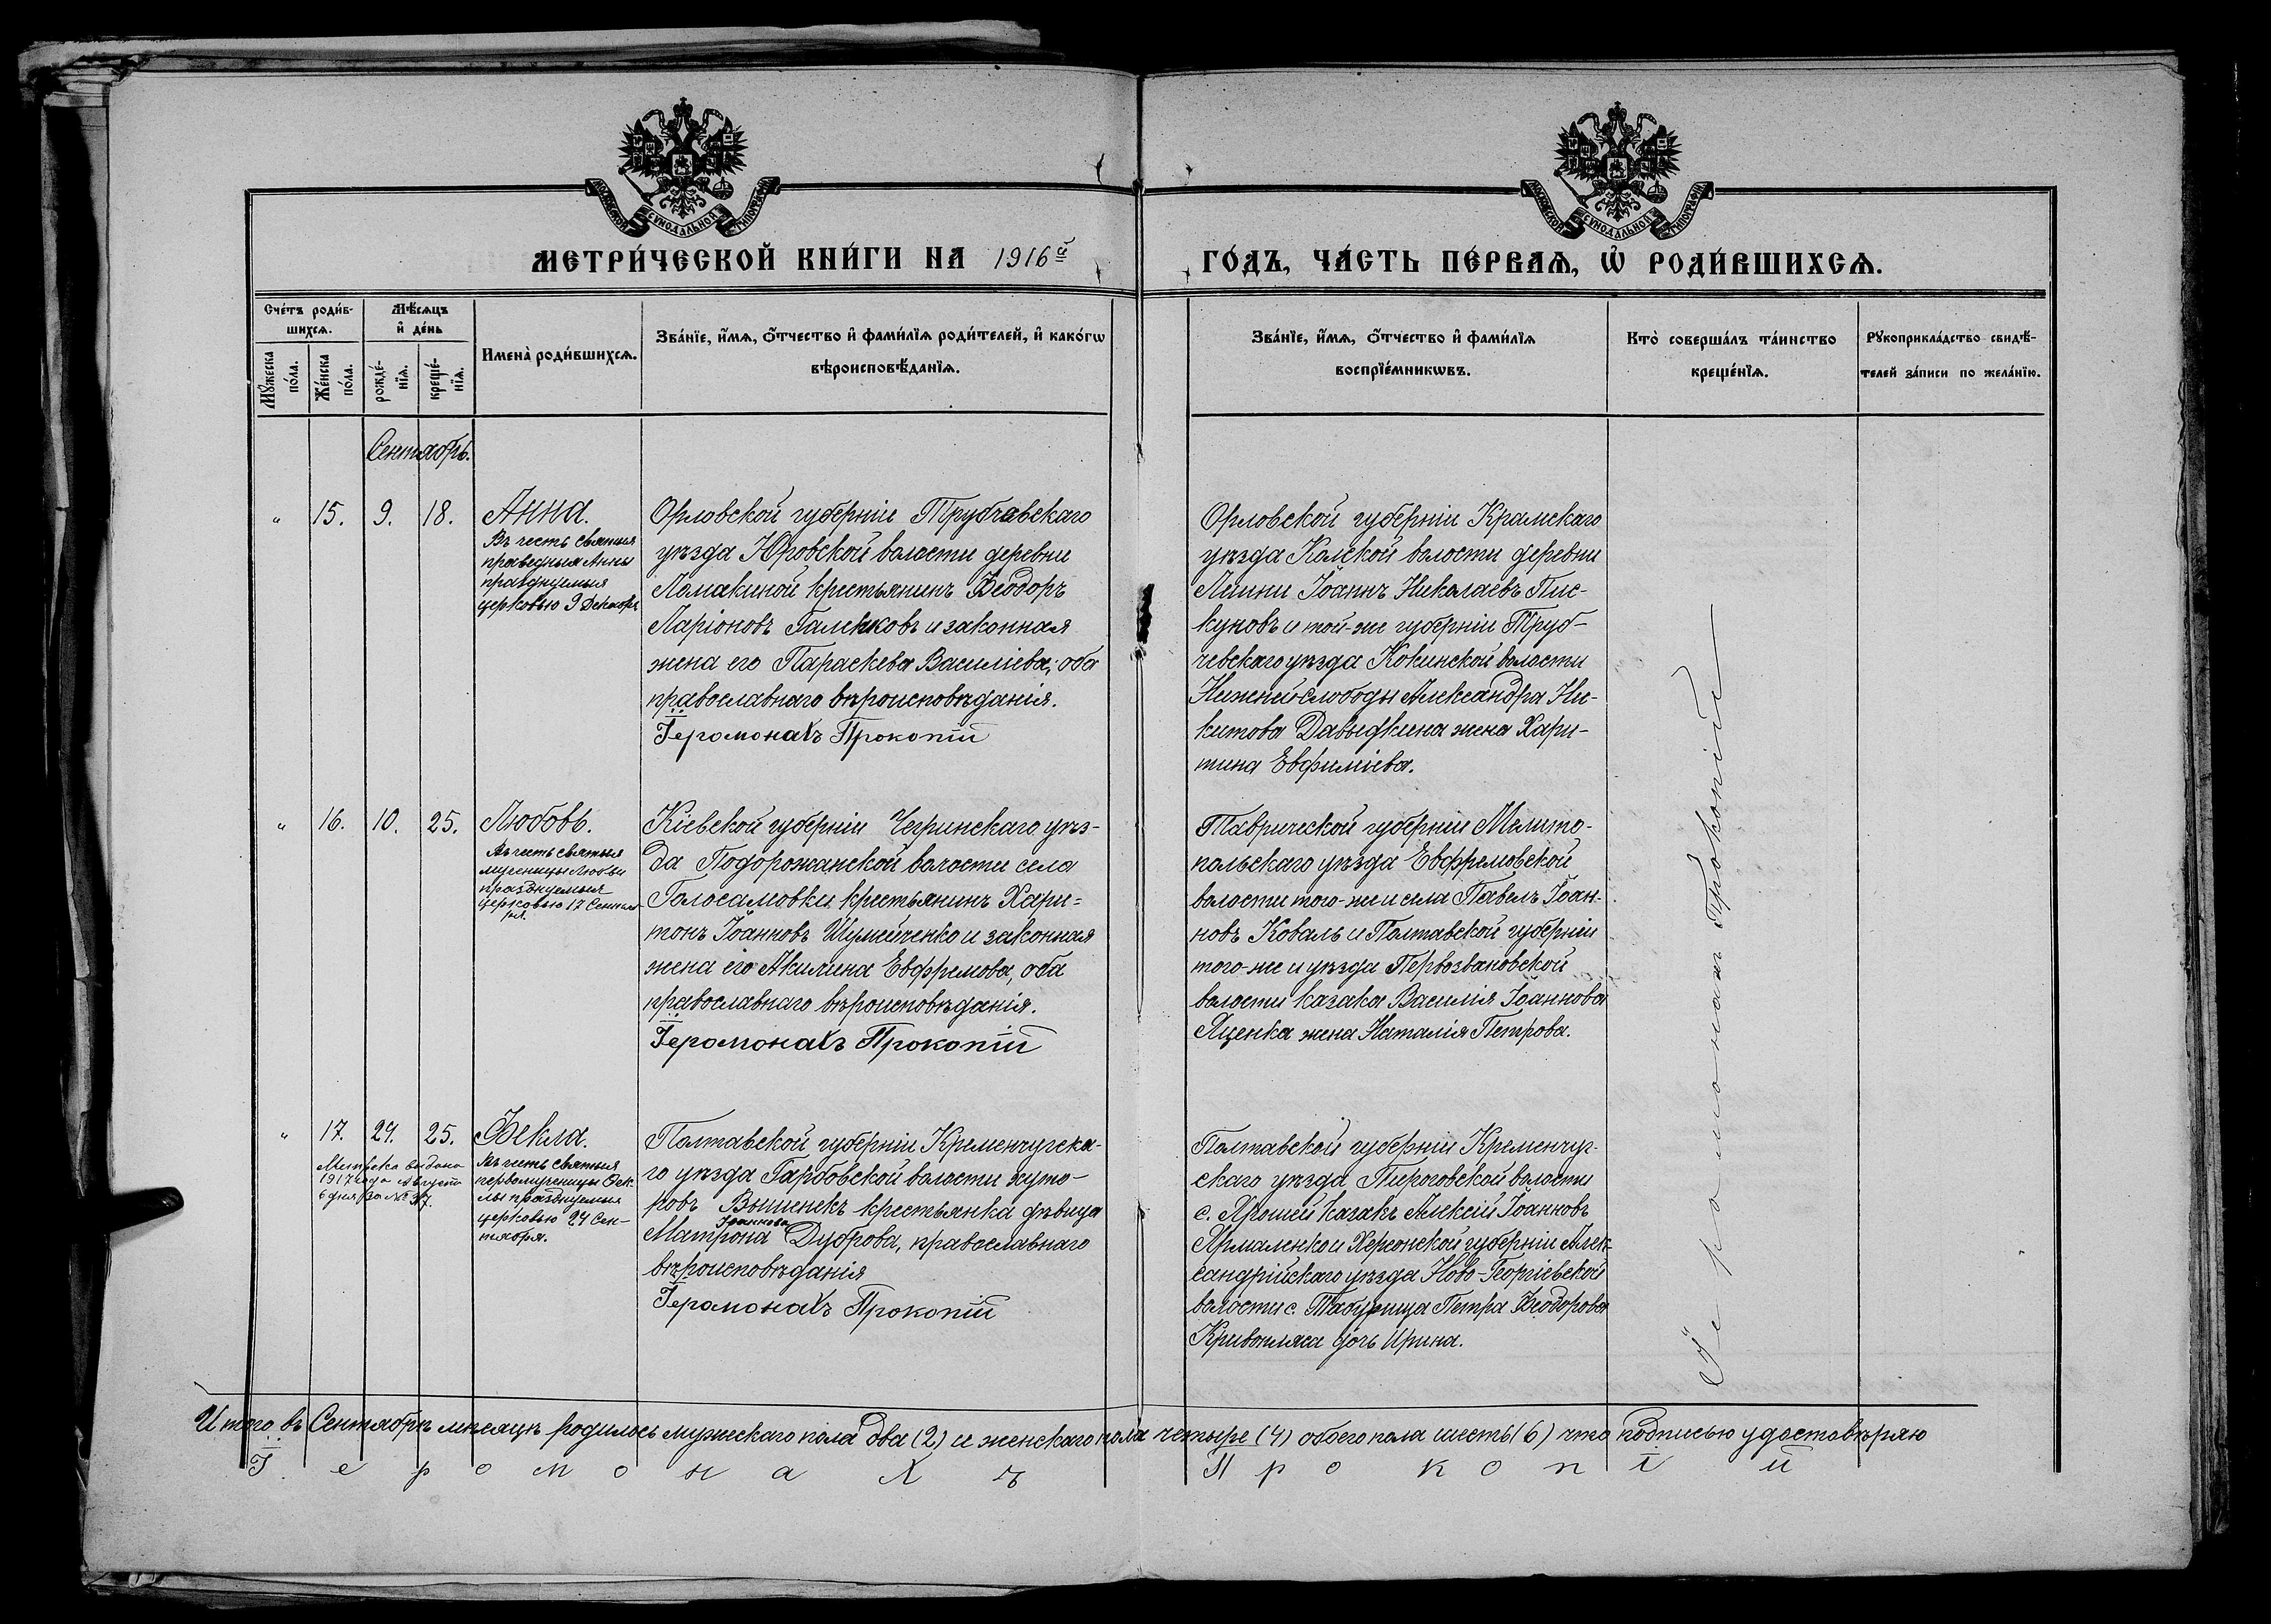 МОСКОВСКОЙ СѴНОДАЛЬНОЙ ТИПОГРАФІИ
МОСКОВСКОЙ СѴНОДАЛЬНОЙ ТИПОГРАФІИ
МЕТРИ́ЧЕСКОЙ КНИ́ГИ НА 1916й
ГО́ДЪ, ЧА́СТЬ ПЕ́РВАѦ, Ѡ҆ РОДИ́ВШИХСѦ.
Сче́тъ роди́в-
шихсѧ.
Мѣ́сѧцъ
и҆ де́нь
Мꙋ́жеска
по́ла.
Же́нска
по́ла.
рожде́-
нїѧ.
креще́-
нїѧ.
Имена̀ роди́вшихсѧ.
Зва́нїе, и҆́мѧ, ѻ҆́тчество и҆ фами́лїѧ роди́телей, и҆ како́гѡ
вѣроисповѣ́данїѧ.
Зва́нїе, и҆́мѧ, ѻ҆́тчество и҆ фами́лїѧ
воспрїе́мникѡвъ.
Кто̀ соверша́лъ та́инство
креще́нїѧ.
Рꙋкоприкла́дство свидѣ́-
телей за́писи по жела́нїю.
Сентябрь.
„ 15. 9. 18. Анна.
Въ честь святыя
праведныя Анны
празднуемыя
церковью 9 Декабря
Орловской губерніи Трубчавскаго
уѣзда Юровской волости деревни
Ломакиной крестьянинъ Ѳеодоръ
Ларіоновъ Галенковъ и законная
жена его Параскева Василіева, оба
православнаго вѣроисповѣданія.
Іеромонахъ Прокопій
Орловской губерніи Крамскаго
уѣзда Колской волости деревни
Липни Іоаннъ Николаевъ Пис-
куновъ и той-же губерніи Труб-
чевскаго уѣзда Кокинской волости
Нижней слободы Александра Ни-
китова Давыдкина жена Хари-
тина Евфиміева.
„ 16. 10. 25. Любовь.
Въ честь святыя
мученицы Любви
празднуемыя
церковью 17 Сентяб-
ря.
Кіевской губерніи Чегринскаго уѣз-
да Подорожанской волости села
Голосамовки крестьянинъ Хари-
тонъ Іоанновъ Шумейченко и законная
жена его Акилина Евфремова, оба
православнаго вѣроисповѣданія.
Іеромонахъ Прокопій
Таврической губерніи Мелито-
польскаго уѣзда Евфремовской
волости того-же и села Павелъ Іоан-
новъ Коваль и Полтавской губерніи
того-же и уѣзда Первозвановской
волости казака Василія Іоаннова
Яценка жена Наталія Петрова.
„ 17. 24. 25. Ѳекла.
Метрека выдана
1917 года Августа
6 дня за № 37.
Въ честь святыя
первомученицы Ѳек-
лы празднуемыя
церковью 24 Сен-
тября.
Полтавской губерніи Кременчугска-
го уѣзда Гарбовской волости хуто-
ровъ Вишенекъ крестьянка дѣвица
Іоаннова
Матрона Дуброва, православнаго
вѣроисповѣданія
Іеромонахъ Прокопій
Полтавской губерніи Кременчуг-
скаго уѣзда Пироговской волости
с. Ярошей казакъ Алексій Іоанновъ
Ярмаленко и Херсонской губерніи Алек-
сандрійскаго уѣзда Ново-Георгіевской
волости с. Табурища Петра Ѳеодорова
Кривопляса дочь Ирина.
Іеромонахъ Прокопій
Итого въ Сентябрѣ мѣсяцѣ родилось мужескаго пола два (2) и женскаго пола четыре (4) обоего пола шесть (6) что подписью удостовѣряю
Іеромонахъ Прокопій